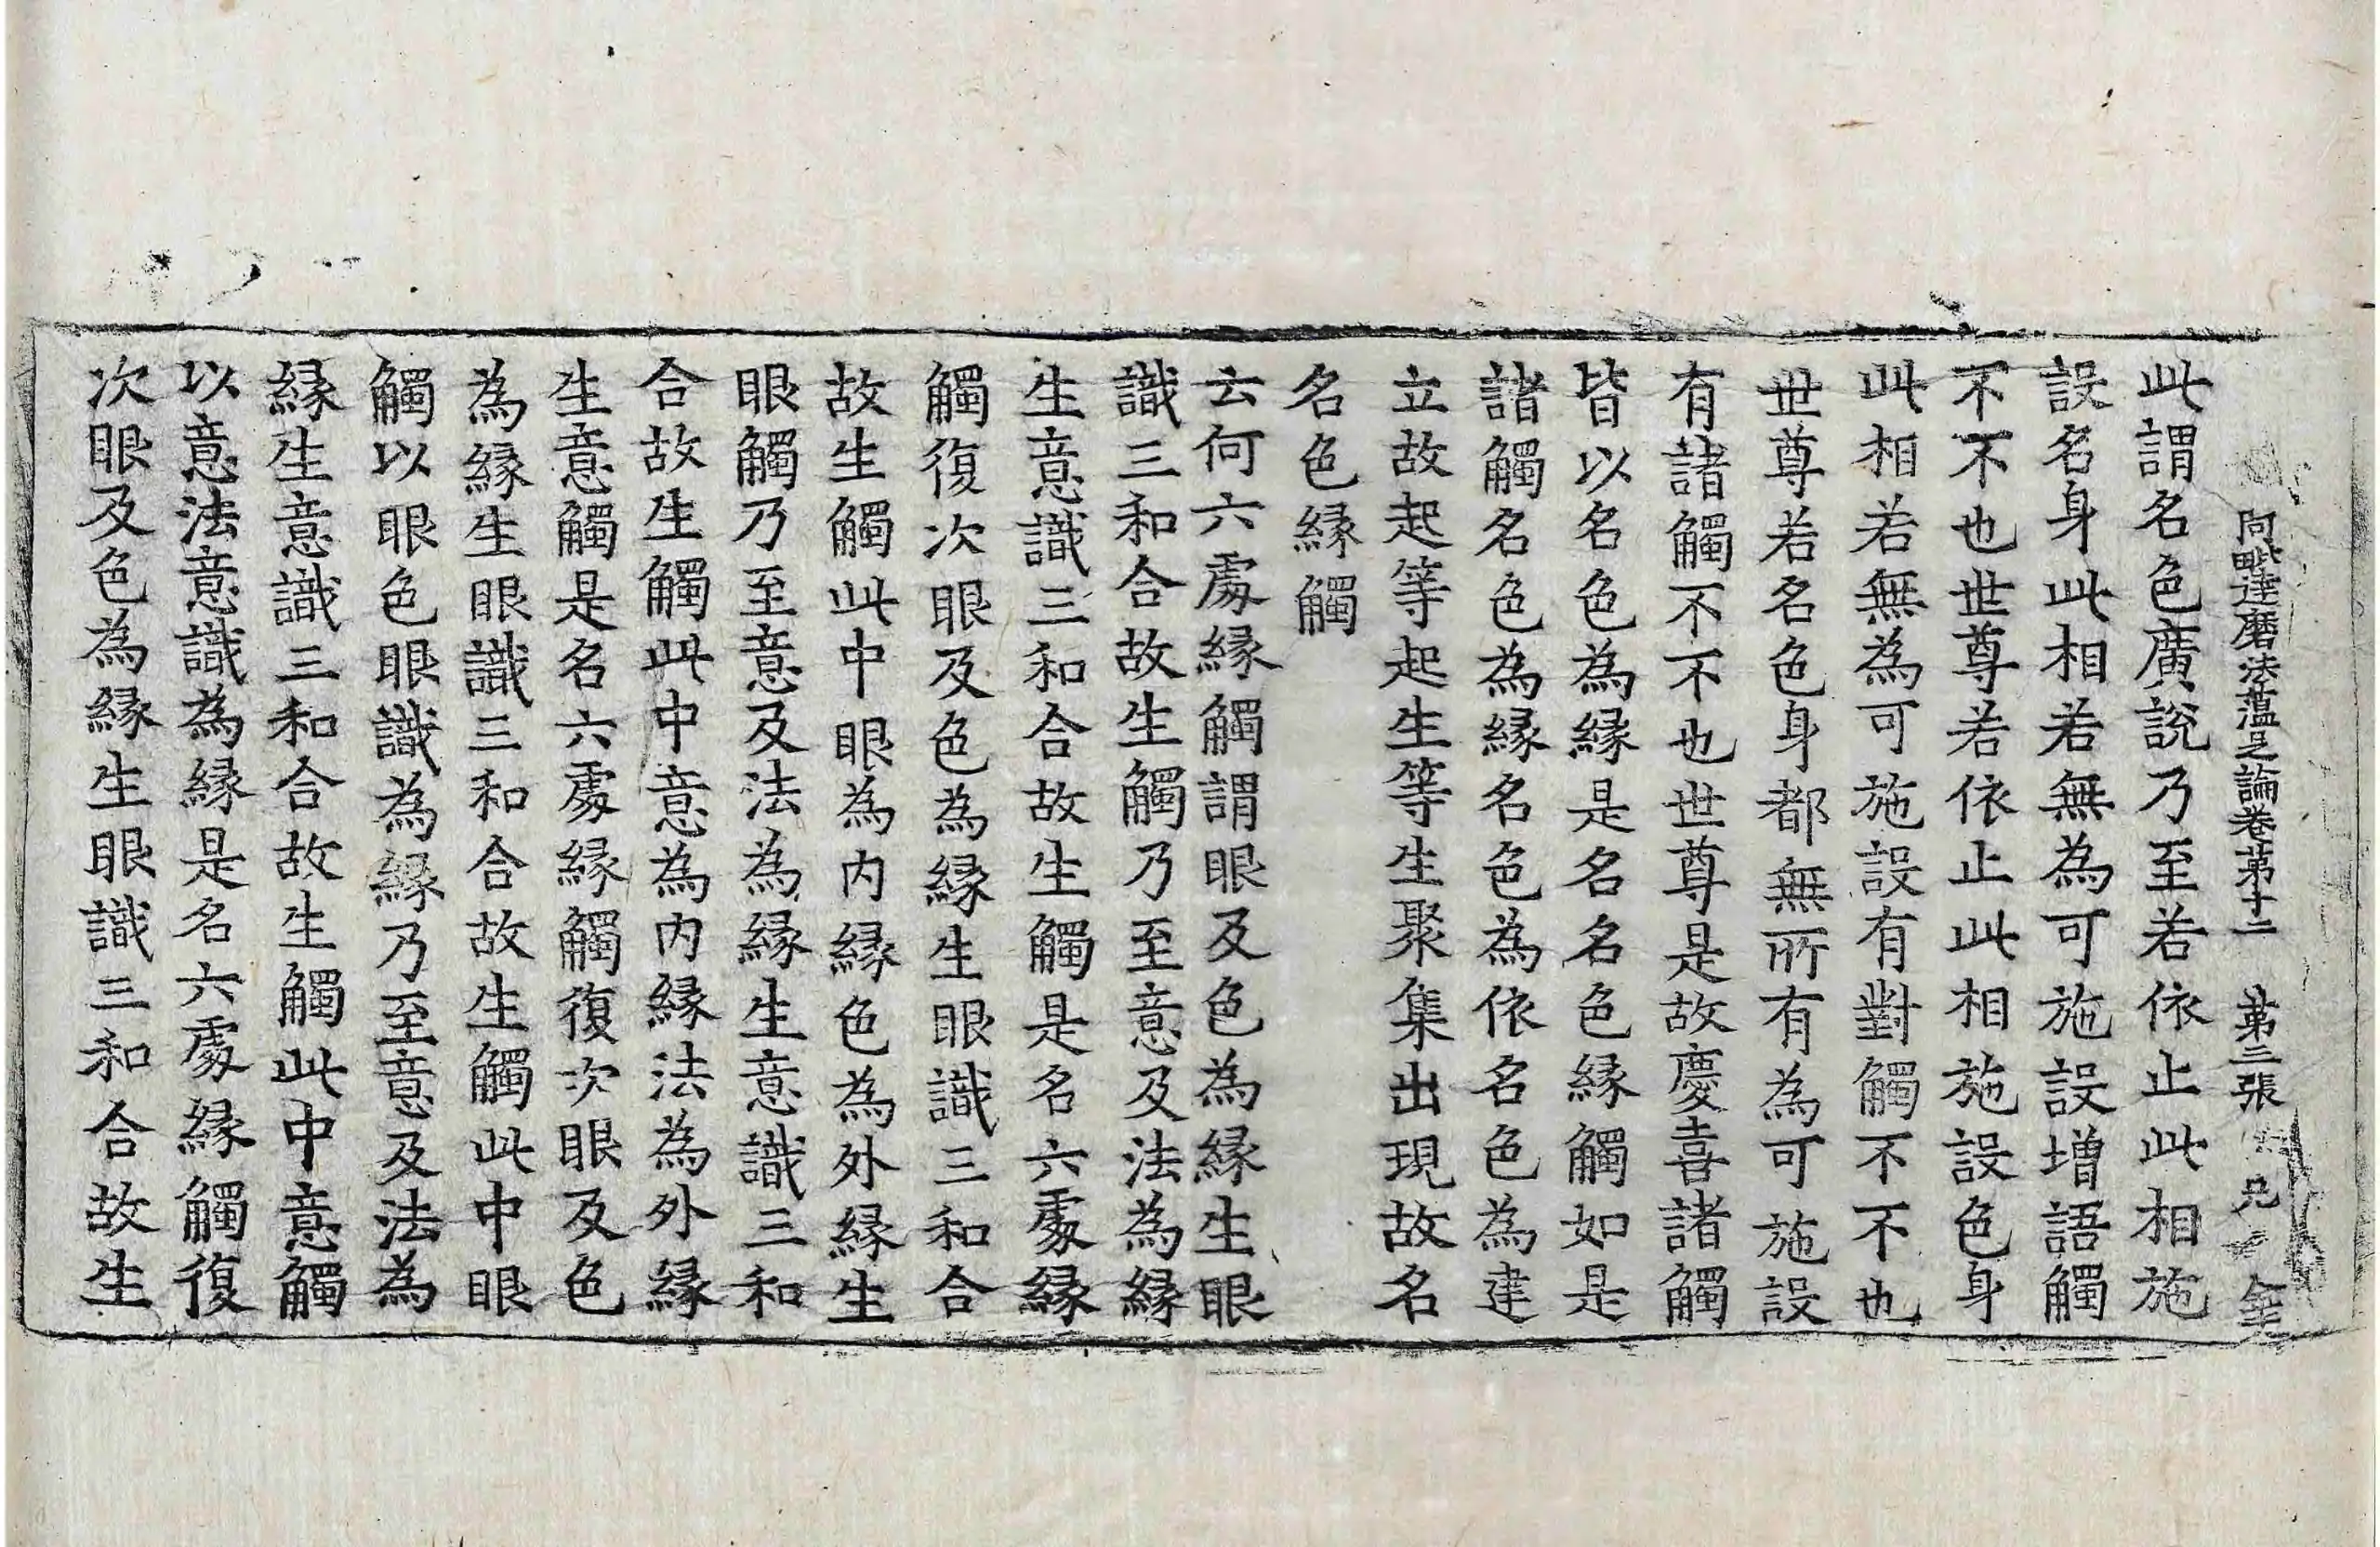 阿毗達磨法蘊足論卷苐十二　苐三張
此謂名色廣說乃至若依止此相施
設名身此相若無為可施設增語觸
不不也世尊若依止此相施設色身
此相若無為可施設有對觸不不也
世尊若名色身都無所有為可施設
有諸觸不不也世尊是故慶喜諸觸
皆以名色為緣是名名色緣觸如是
諸觸名色為緣名色為依名色為建
立故起等起生等生聚集出現故名
名色緣觸
云何六處緣觸謂眼及色為緣生眼
識三和合故生觸乃至意及法為緣
生意識三和合故生觸是名六處緣
觸復次眼及色為緣生眼識三和合
故生觸此中眼為內緣色為外緣生
眼觸乃至意及法為緣生意識三和
合故生觸此中意為內緣法為外緣
生意觸是名六處緣觸復次眼及色
為緣生眼識三和合故生觸此中眼
觸以眼色眼識為緣乃至意及法為
緣生意識三和合故生觸此中意觸
以意法意識為緣是名六處緣觸復
次眼及色為緣生眼識三和合故生